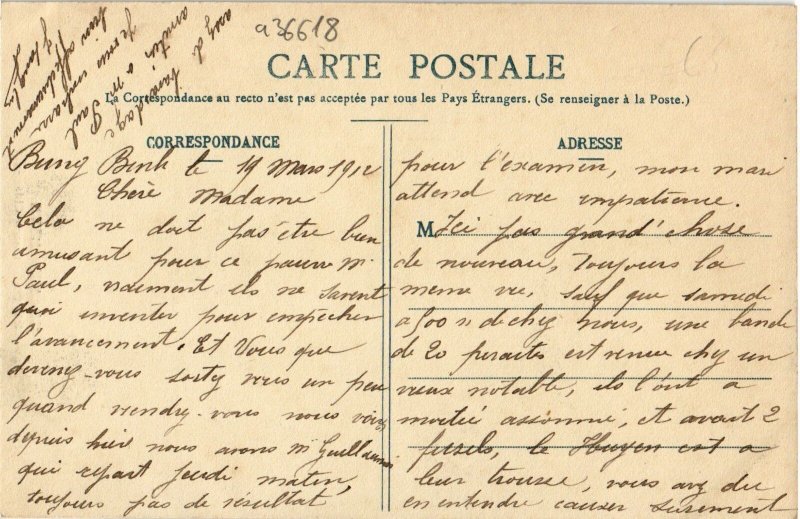 a36618
CARTE POSTALE
La Correspondance au recto n'est pas acceptée par tous les Pays Étrangers. (Se renseigner à la Poste.)
CORRESPONDANCE
Bung Binh le 19 Mars 1912
Chère Madame
Cela ne doit pas être bien
amusant pour ce pauvre Mr
Paul, vraiment ils ne savent
quoi inventer pour empêcher
l'avancement. Et Vous que
devenez-vous sortez vous un peu
quand viendrez-vous nous voir,
depuis hier nous avons Mr Guillaumin
qui repart Jeudi matin,
toujours pas de résultat
ADRESSE
pour l'examen, mon mari
attend avec impatience.
M Ici pas grand'chose
de nouveau, Toujours la
meme vie, sauf que samedi
à 500 m de chez nous, une bande
de 20 pirates est venue chez un
vieux notable, ils l'ont a
moitié assommé, et avait 2
fusils, le Huyen est a
leur trousse, vous avez du
en entendre causer surement
avez de
amitiés
a Mr Paul
Je vous embrasse
bien affectueusement